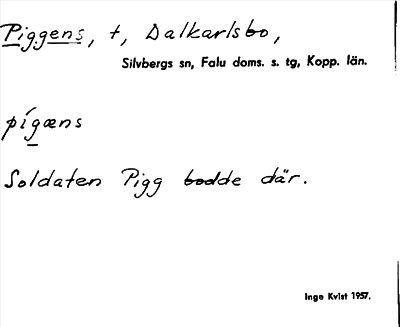 Piggens, t, Dalkarlsbo,
Silvbergs sn, Falu doms. s. tg, Kopp. län.
pígæns
Soldaten Pigg bodde där.
Inge Kvist 1957.